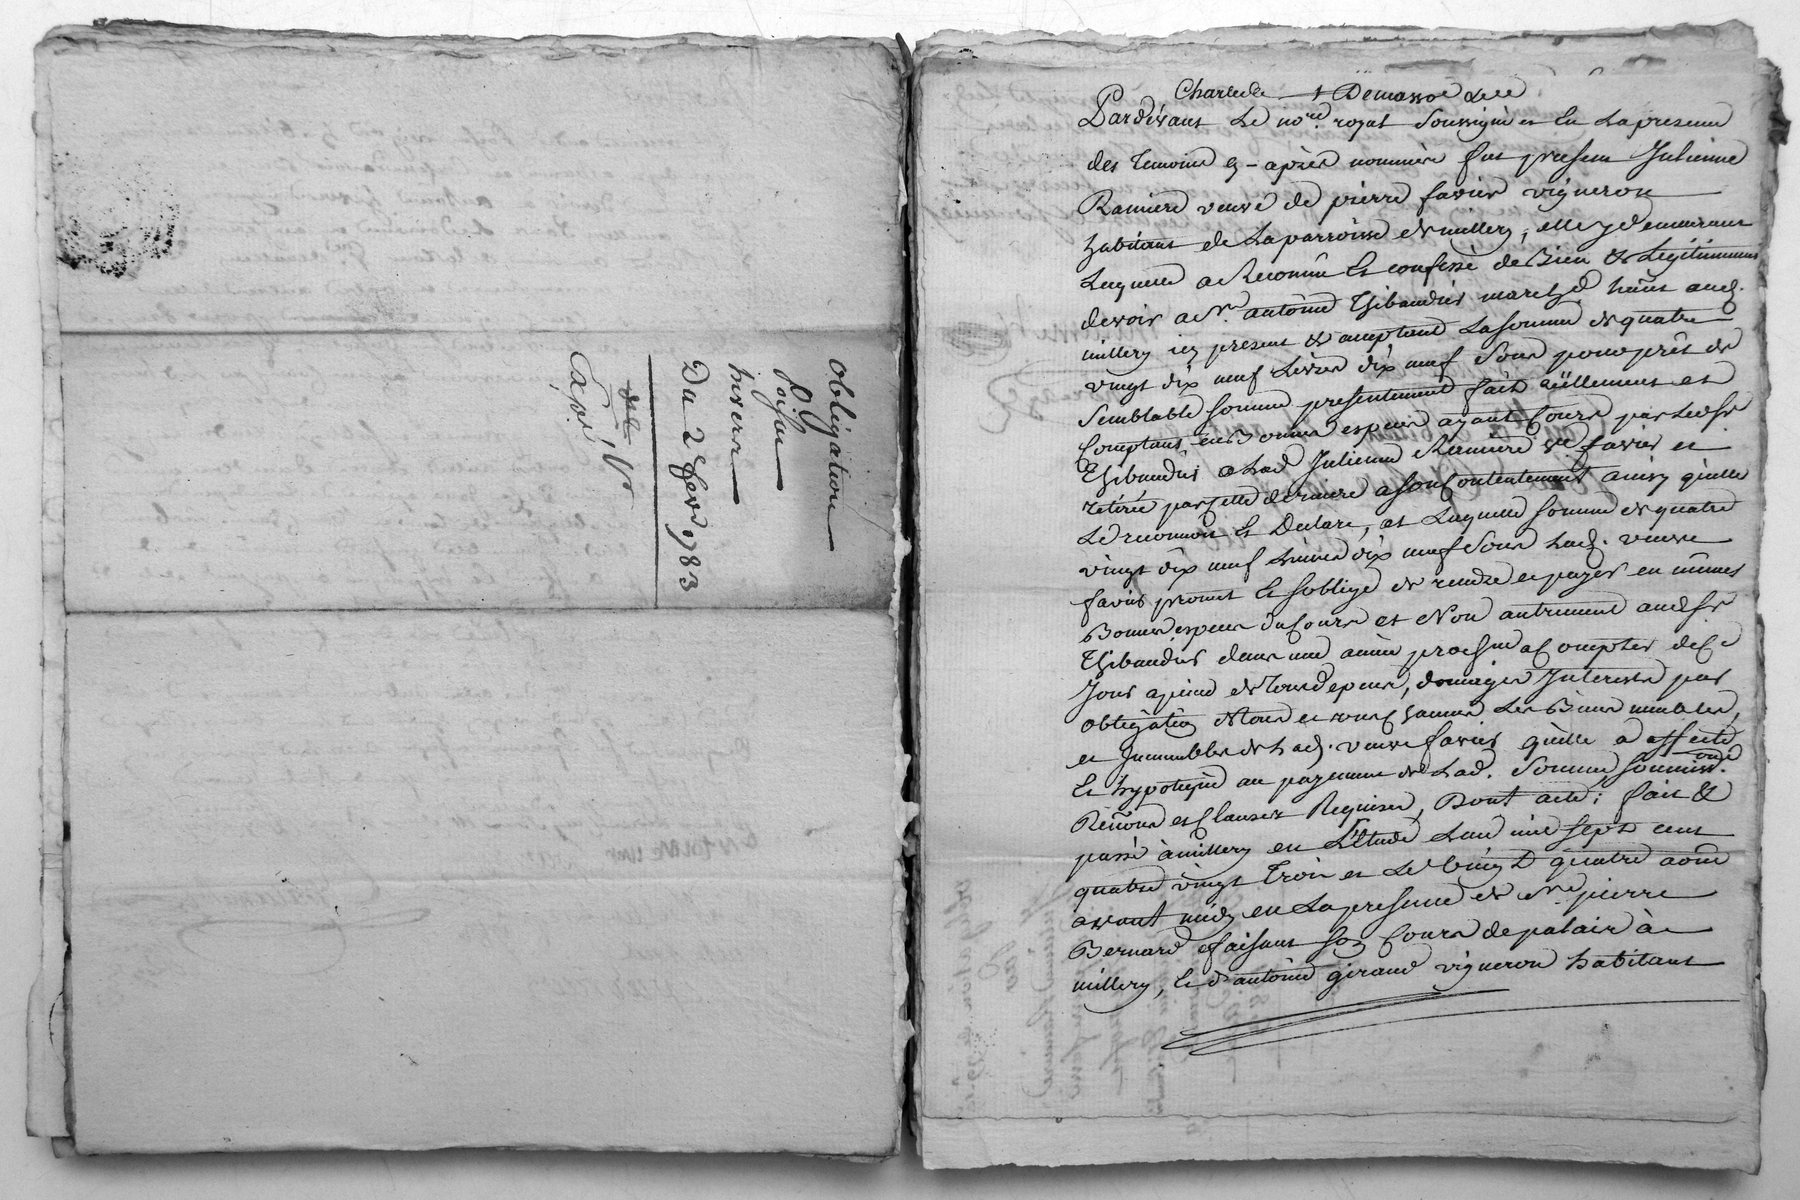 obligation
Du 2 fevr. 1783
Expé
Pardevant Le no.re royal Soussigné et En La presence
des Temoins cy-après nommés fut presente Julienne
Ramiere veuve de pierre favier vigneron
habitant de La parroisse de millery, elle y demeurant
Laquelle a Reconnu Et confessé de Bien & Legitimement
devoir a Sr. antoine Thibaudier march.d
millery icy present & acceptant La somme de quatre
vingt dix neuf Livres dix neuf Sous pour prêt de
Semblable somme presentement fait réellement et
Comptant en Bonnes especes ayant Cours par Led Sr
Thibaudier a Lad Julienne Ramiere ve favier et
retirée par cette derniere a son Contentement ainsy qu'elle
Le reconnoit Et Declare, et Laquelle somme de quatre
vingt dix neuf Livres dix neuf Sous Lad. veuve
favier promet Et s'oblige de rendre et payer en mêmes
Bonnes especes du Cours et Non autrement aud Sr
Thibaudier dans une année proch.ne a Compter de Ce
Jour a peine de Tous depens, domages Interests par
obligation de tous et Les Biens meubles,
et Immeubles de Lad. veuve favier qu'elle a affecté
Et hypotequé au payement de Lad. Somme soumiss.ons
Renons et Clauses Requises, Dont acte; fait &
passé à millery en L'Etude L'an mil sept cent
quatre vingt Trois et Le vingt quatre aout
avant midy en La presence de Sr. pierre
Bernard faisant son Cours de palais à
millery, Et d'antoine giraud vigneron habitant